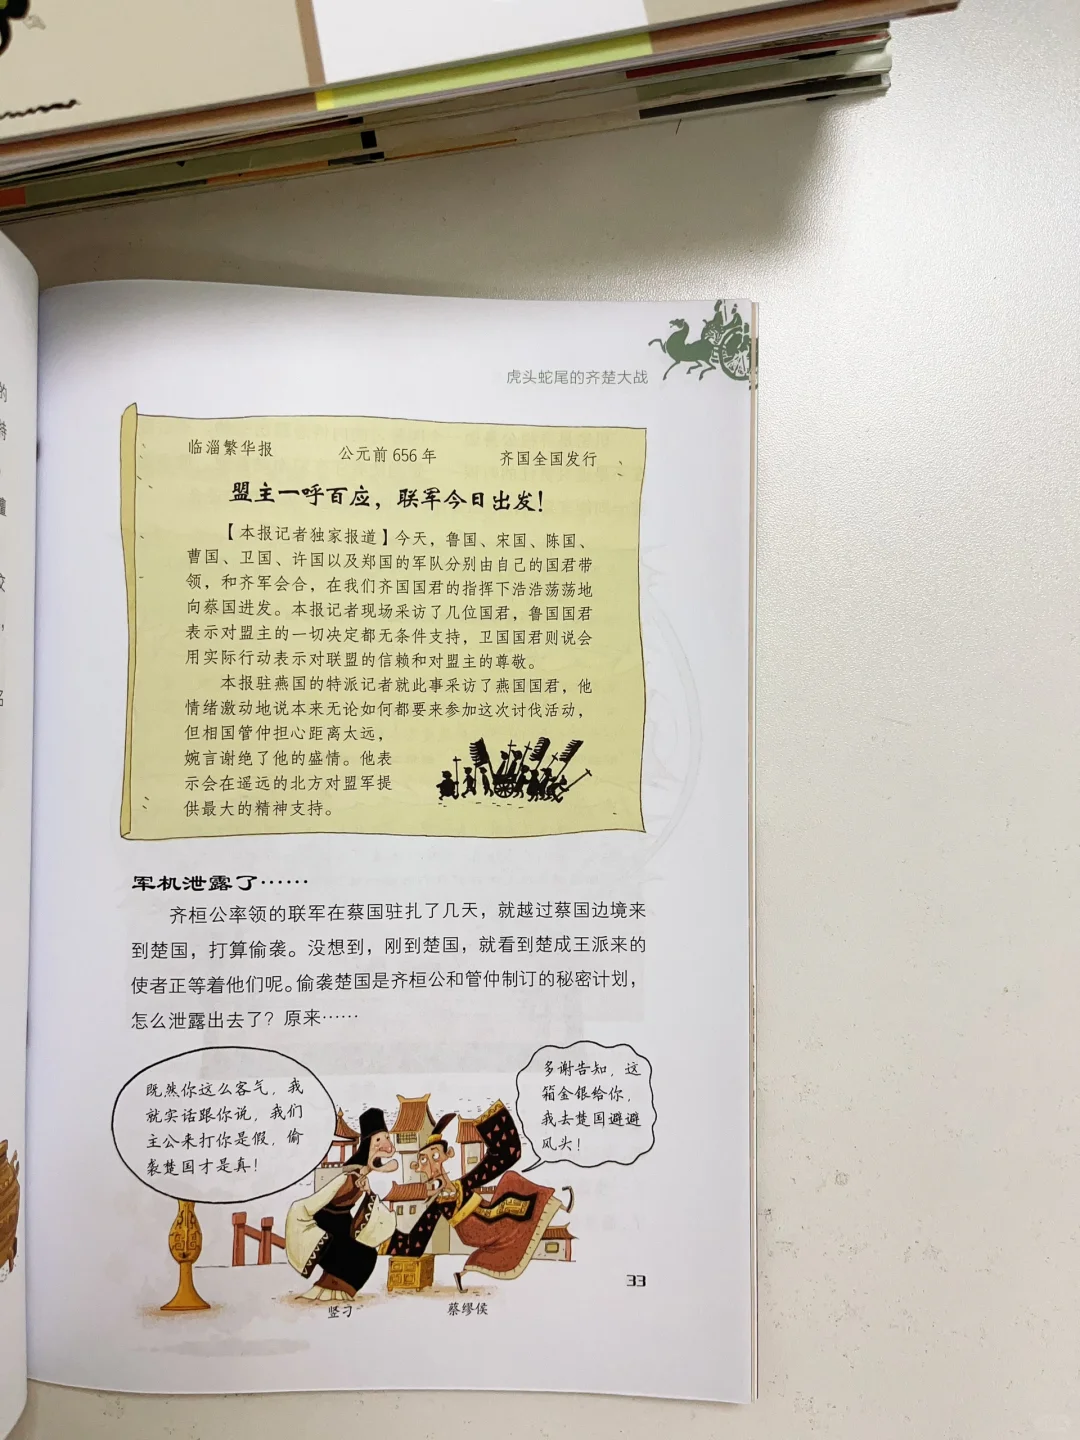 虎头蛇尾的齐楚大战
临淄繁华报 公元前656年 齐国全国发行
盟主一呼百应，联军今日出发！
【本报记者独家报道】今天，鲁国、宋国、陈国、
曹国、卫国、许国以及郑国的军队分别由自己的国君带
领，和齐军会合，在我们齐国国君的指挥下浩浩荡荡地
向蔡国进发。本报记者现场采访了几位国君，鲁国国君
表示对盟主的一切决定都无条件支持，卫国国君则说会
用实际行动表示对联盟的信赖和对盟主的尊敬。
本报驻燕国的特派记者就此事采访了燕国国君，他
情绪激动地说本来无论如何都要来参加这次讨伐活动，
但相国管仲担心距离太远，
婉言谢绝了他的盛情。他表
示会在遥远的北方对盟军提
供最大的精神支持。
军机泄露了……
齐桓公率领的联军在蔡国驻扎了几天，就越过蔡国边境来
到楚国，打算偷袭。没想到，刚到楚国，就看到楚成王派来的
使者正等着他们呢。偷袭楚国是齐桓公和管仲制订的秘密计划，
怎么泄露出去了？原来……
既然你这么客气，我
就实话跟你说，我们
主公来打你是假，偷
袭楚国才是真！
多谢告知，这
箱金银给你，
我去楚国避避
风头！
竖刁
蔡缪侯
33
的
特